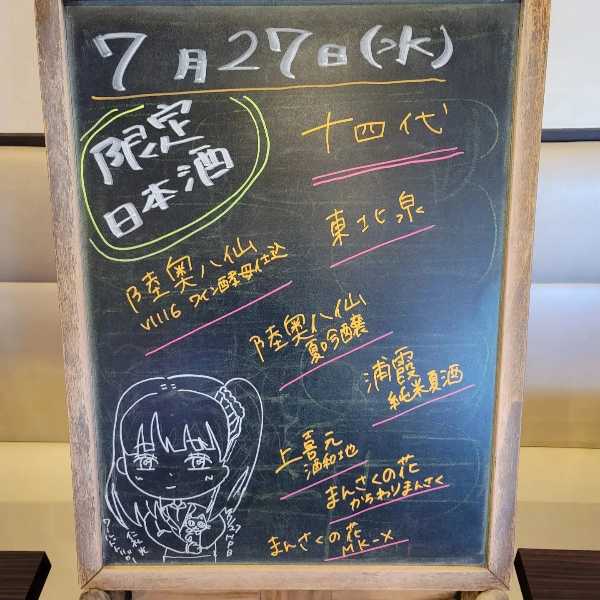 7月27日(水)
限定
日本酒
十四代
東北泉
陸奥八仙
V1116 ワイン酵母仕込
陸奥八仙
夏吟醸
浦霞
純米夏酒
上喜元
酒和地
まんさくの花
かちわりまんさく
まんさくの花
MK-X